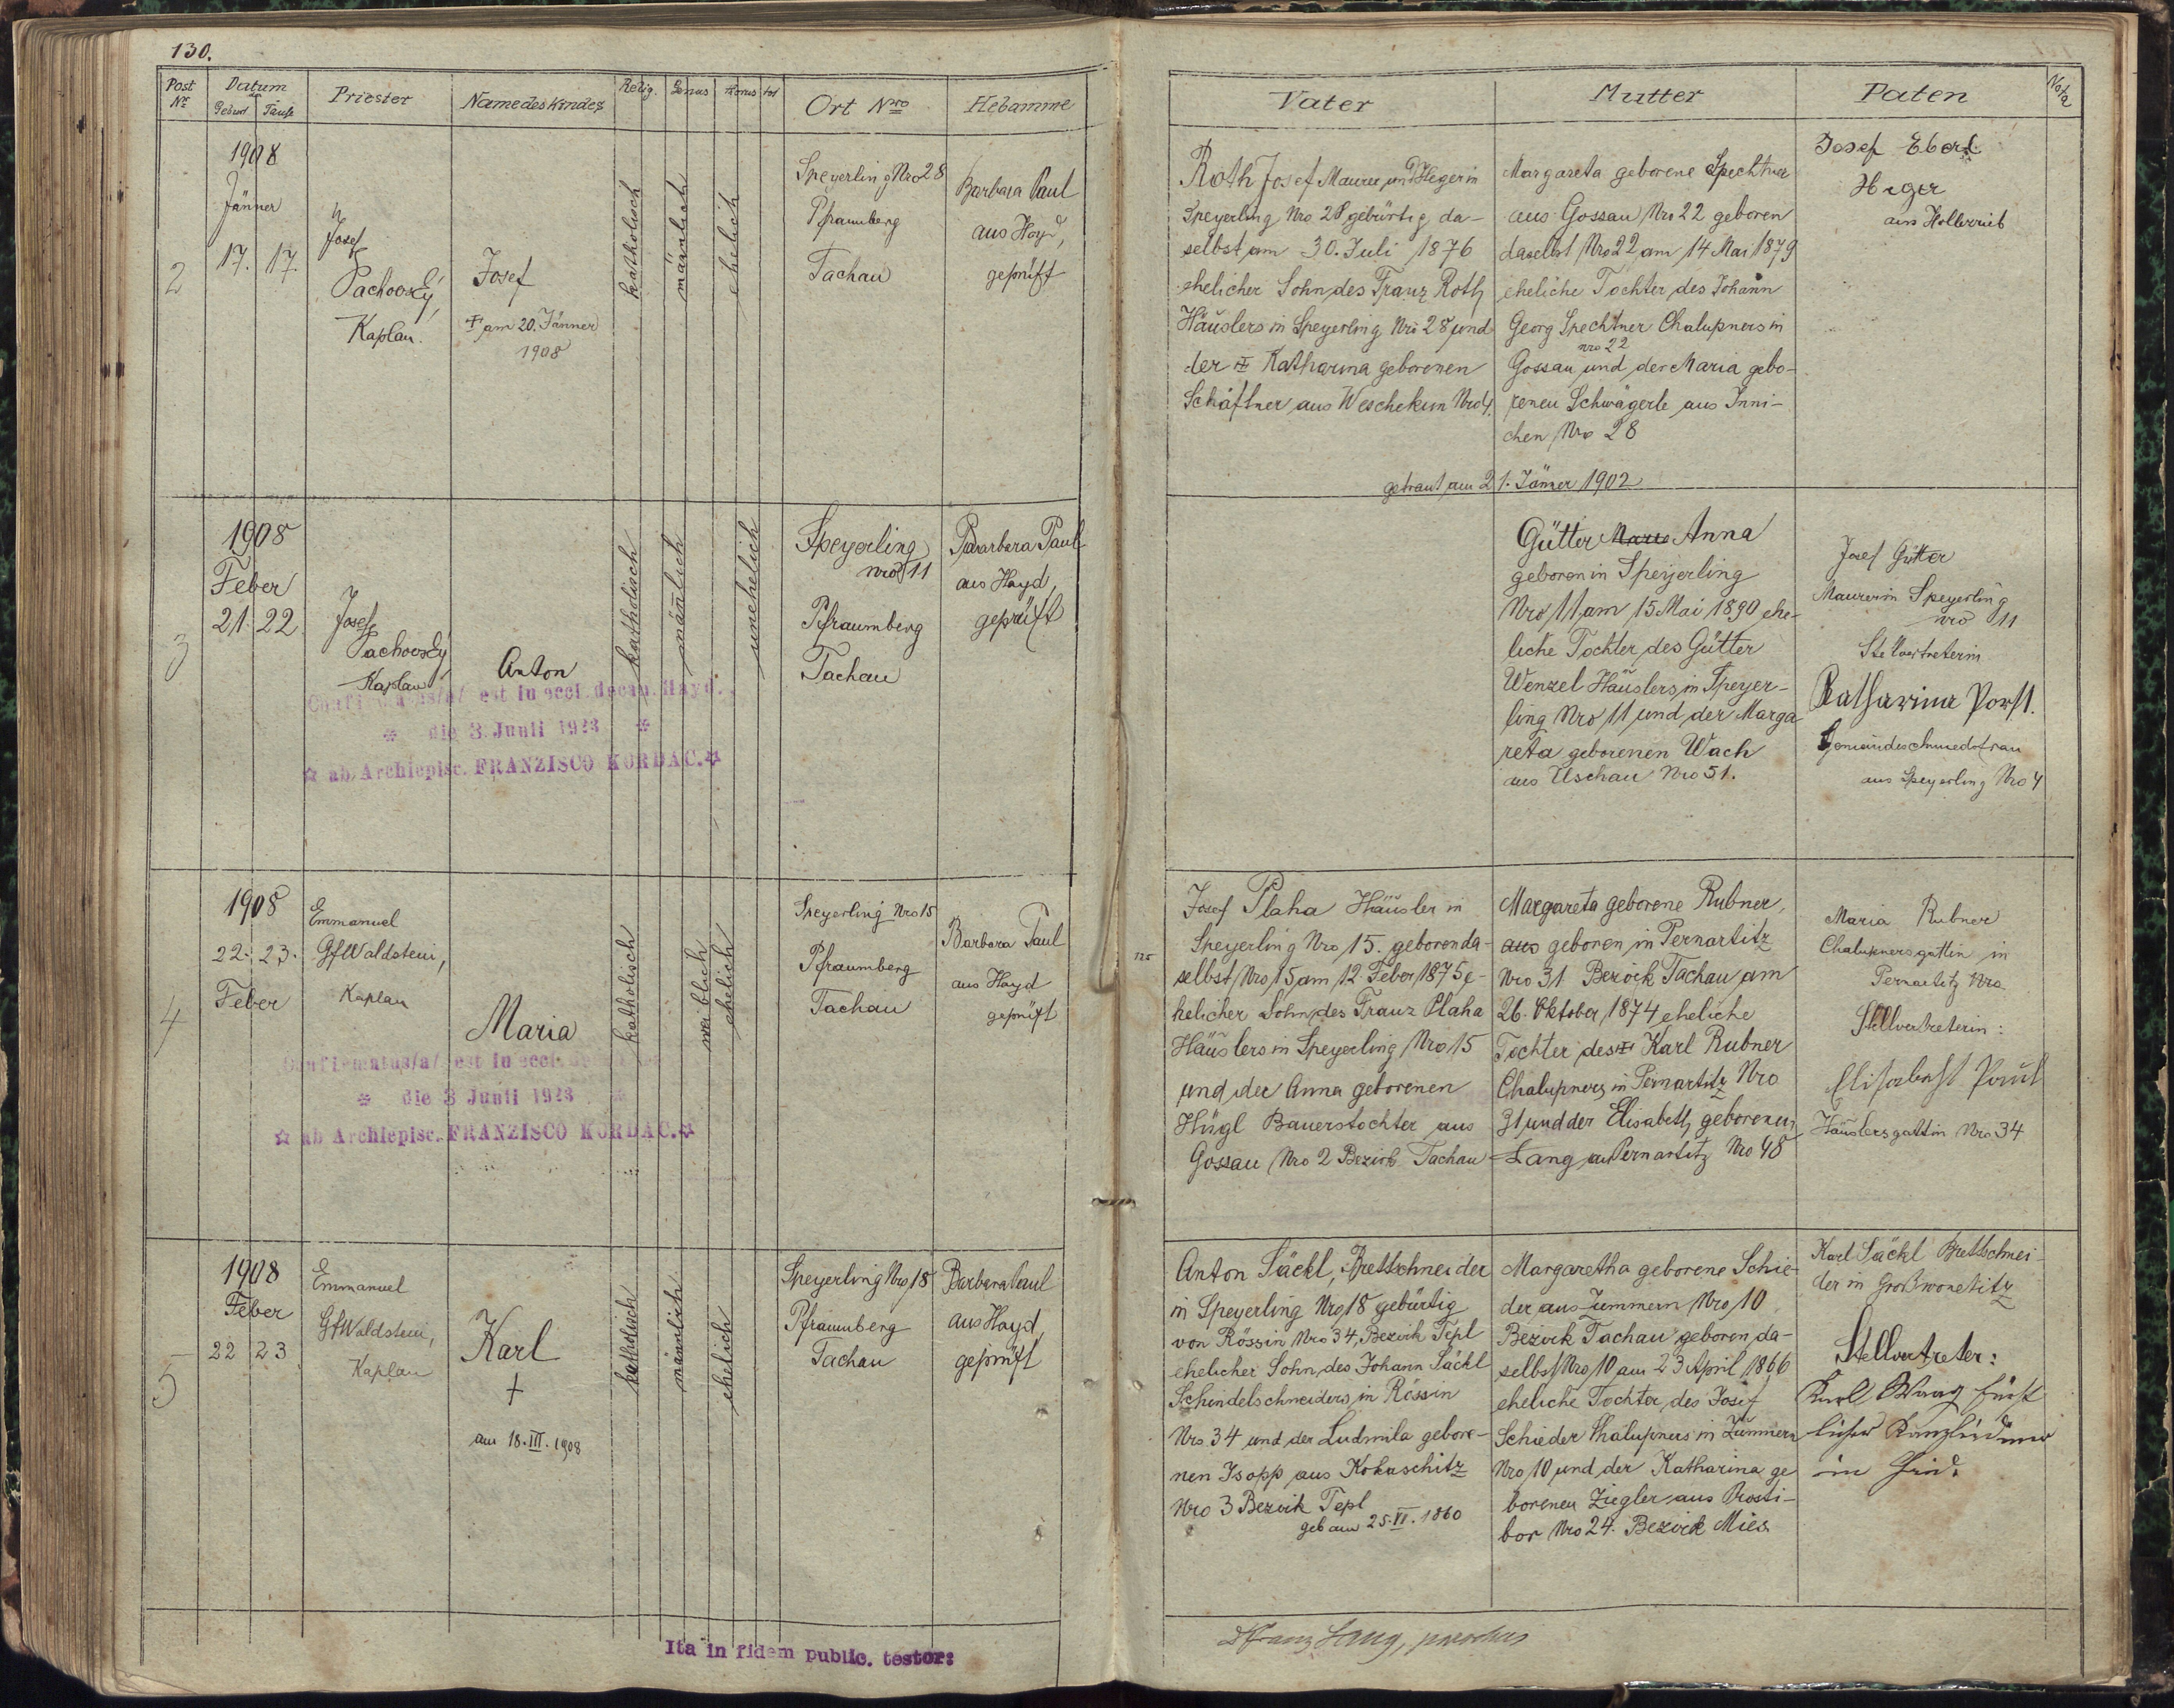 130.
Post Nr
Datum der
Geburt Taufe
Priester
Name des Kindes
Relig.
Genus
Thorus
tot
Ort Nro
Hebamme
Vater
Mutter
Paten
Nota
2
1908
Jänner
17. 17.
Josef
Pachovský,
Kaplan.
Josef
† am 20. Jänner
1908
katholisch
männlich
ehelich
Speyerling Nro 28
Pfraumberg
Tachau
Barbara Paul
aus Hayd,
geprüft
Roth Josef Maurer und Heger in
Speyerling Nro 28 gebürtig da-
selbst am 30. Juli 1876
ehelicher Sohn des Franz Roth
Häuslers in Speyerling Nro 28 und
der † Katharina geborenen
Schäftner aus Weschekun Nro 4.
Margareta geborene Spechtner
aus Gossau Nro 22 geboren
daselbst Nro 22 am 14 Mai 1879
eheliche Tochter des Johann
Georg Spechtner Chalupners in
nro 22
Gossau und der Maria gebo-
renen Schwägerle aus Inni-
chen Nro 28
getraut am 21. Jänner 1902
Josef Eberl
Heger
aus
3
1908
Feber
21 22
Josef
Pachovský
Kaplan
Anton
Confirmatus/a/ est in eccl. decan. Hayd.
die 3. Junii 1923
ab Archiepisc. FRANZISCO KORDAC.
katholisch
männlich
unehelich
Speyerling
nro 11
Pfraumberg
Tachau
Barbara Paul
aus Hayd,
geprüft
Gütter Marie Anna
geboren in Speyerling
Nro 11 am 15. Mai 1890 ehe-
liche Tochter des Gütter
Wenzel Häuslers in Speyer-
ling Nro 11 und der Marga
reta geborenen Wach
aus Uschau Nro 51.
Josef Gütter
Maurer in Speyerling
nro 11
Stellvertreterin
Katharina Porst.
Gemeindeschmiedsfrau
aus Speyerling Nro 4
4
1908
22. 23.
Feber
Emmanuel
Gf Waldstein,
Kaplan
Maria
Confirmatus/a/ est in eccl.
die 3 Junii 1923
ab Archiepisc. FRANZISCO KORDAC.
katholisch
weiblich
ehelich
Speyerling Nro 15
Pfraumberg
Tachau
Barbara Paul
aus Hayd
geprüft
Josef Plaha Häusler in
Speyerling Nro 15. geboren da-
selbst Nro 15 am 12 Feber 1875 e-
helicher Sohn des Franz Plaha
Häuslers in Speyerling Nro 15
und der Anna geborenen
Hügl Bauerstochter aus
Gossau Nro 2 Bezirk Tachau
Margareta geborene Rubner,
aus geboren in Pernartitz
Nro 31 Bezirk Tachau am
26. Oktober 1874 eheliche
Tochter des † Karl Rubner
Chalupners in Pernartitz Nro
31 und der Elisabeth geborenen
Lang aus Pernartitz Nro 48
Maria Rubner
Chalupnersgattin in
Pernartitz Nro.
Stellvertreterin:
Elisabeth Paul
Häuslersgattin Nro 34
5
1908
Feber
22 23
Emmanuel
Gf Waldstein,
Kaplan
Karl
†
am 18. III. 1908
katholisch
männlich
ehelich
Speyerling Nro 18
Pfraumberg
Tachau
Barbara Paul
aus Hayd,
geprüft
Anton Säckl, Brettschneider
in Speyerling Nro 18 gebürtig
von Rössin Nro 34, Bezirk Tepl
ehelicher Sohn des Johann Säckl
Schindelschneiders in Rössin
Nro 34 und der Ludmila gebore-
nen Isopp aus Kokaschitz
Nro 3 Bezirk Tepl
geb am 25. VI. 1860
Margaretha geborene Schie-
der aus Zummern Nro 10
Bezirk Tachau geboren da-
selbst Nro 10 am 23 April 1866
eheliche Tochter des Josef
Schieder Chalupners in Zummern
Nro 10 und der Katharina ge
borenen Ziegler aus Prosti-
bor Nro 24. Bezirk Mies
Karl Säckl Brettschnei-
der in Großwonetitz
Stellvertreter:
Karl fürst
licher Kanzleidiener
in
Ita in fidem public. testor:
Franz Lang, parochus